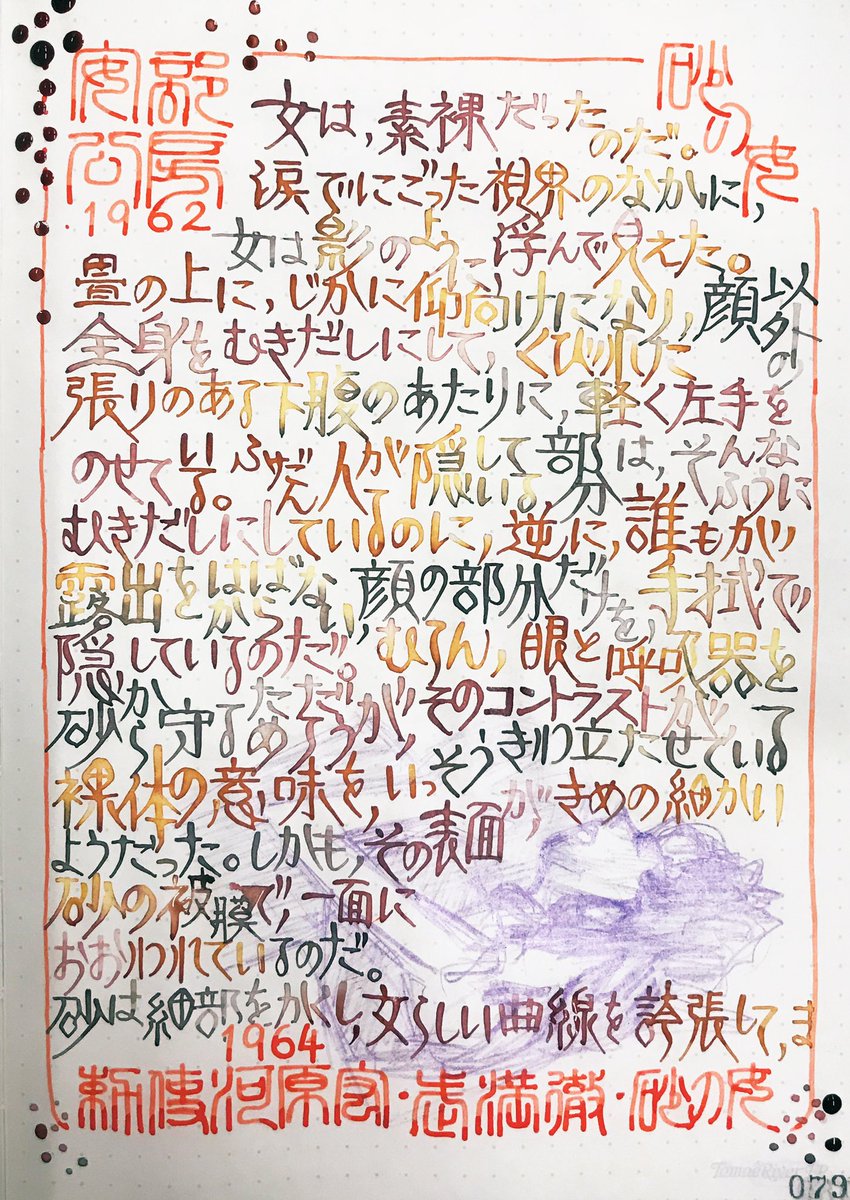 安部
公房
1962
砂の女
女は,素裸だったのだ。
涙でにごった視界のなかに,
女は影のように浮んで見えた。
畳の上に,じかに仰向けになり,顔以外の
全身をむきだしにして,くびれた
張りのある下腹のあたりに,軽く左手を
のせている。ふだん人が隠している部分は,そんなふうに
むきだしにしているのに,逆に,誰もが
露出をはばからない,顔の部分だけを,手拭で
隠しているのだ。むろん,眼と呼吸器を
砂から守るためだろうが,そのコントラストが
裸体の意味を,いっそうきわ立たせている
ようだった。しかも,その表面が,きめの細かい
砂の被膜で,一面に
おおわれているのだ。
砂は細部をかくし,女らしい曲線を誇張して,ま
1964
勅使河原宏・武満徹・砂の女
Tomoe River FP
079